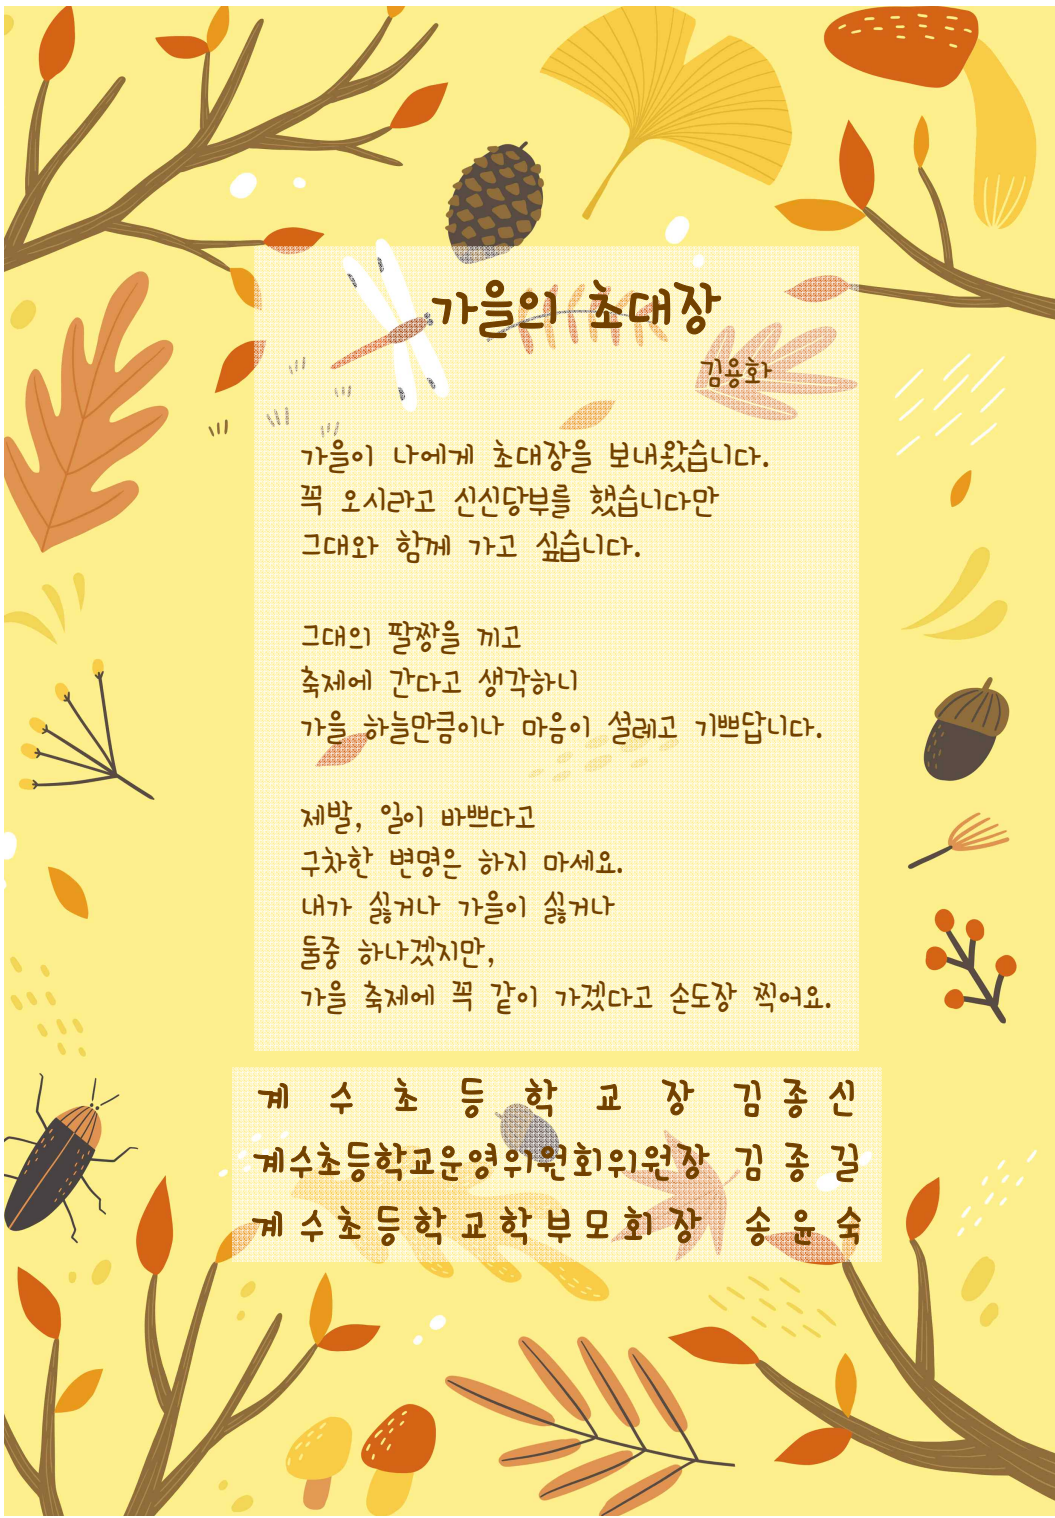 가을의 초대장
김용화
가을이 나에게 초대장을 보내왔습니다.
꼭 오시라고 신신당부를 했습니다만
그대와 함께 가고 싶습니다.
그대의 팔짱을 끼고
축제에 간다고 생각하니
가을 하늘만큼이나 마음이 설레고 기쁘답니다.
제발, 일이 바쁘다고
구차한 변명은 하지 마세요.
내가 싫거나 가을이 싫거나
둘중 하나겠지만,
가을 축제에 꼭 같이 가겠다고 손도장 찍어요.
계 수 초 등 학 교 장 김 종 신
계수초등학교운영위원회위원장 김 종 길
계 수 초 등 학 교 학 부 모 회 장 송 윤 숙